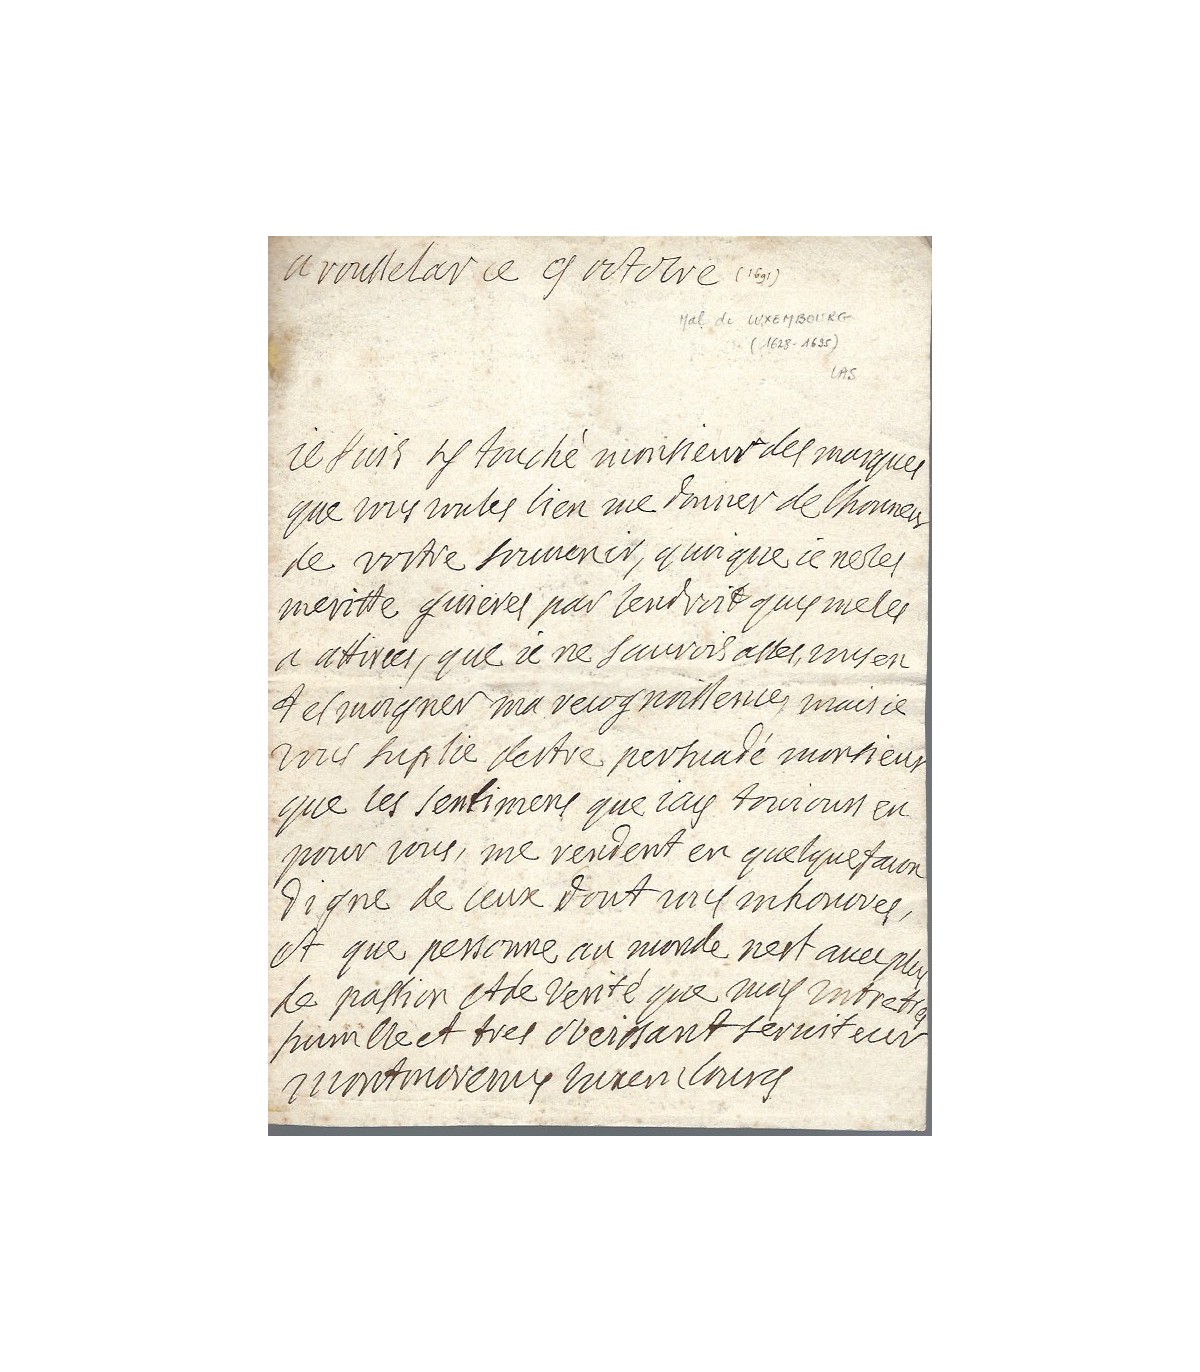 a rousselar ce 9 octobre (1691)
Mal de LUXEMBOURG
(1628-1695)
LAS
ie suis sy touché monsieur des marques
que vous voules bien me donner de lhonneur
de vostre souuenir, quoique ie ne les
meritte guieres par lendroit quy me les
a attirées, que ie ne saurois asses vous en
tesmoigner ma recognoissence, mais ie
vous suplie destre persuadé monsieur
que les sentimens que iay touiours eu
pour vous, me rendent en quelque facon
digne de ceux dont vous mhonores,
et que personne au monde nest auec plus
de passion et de verité que moy vostre tres
humble et tres obeissant seruiteur
montmorency luxembourg